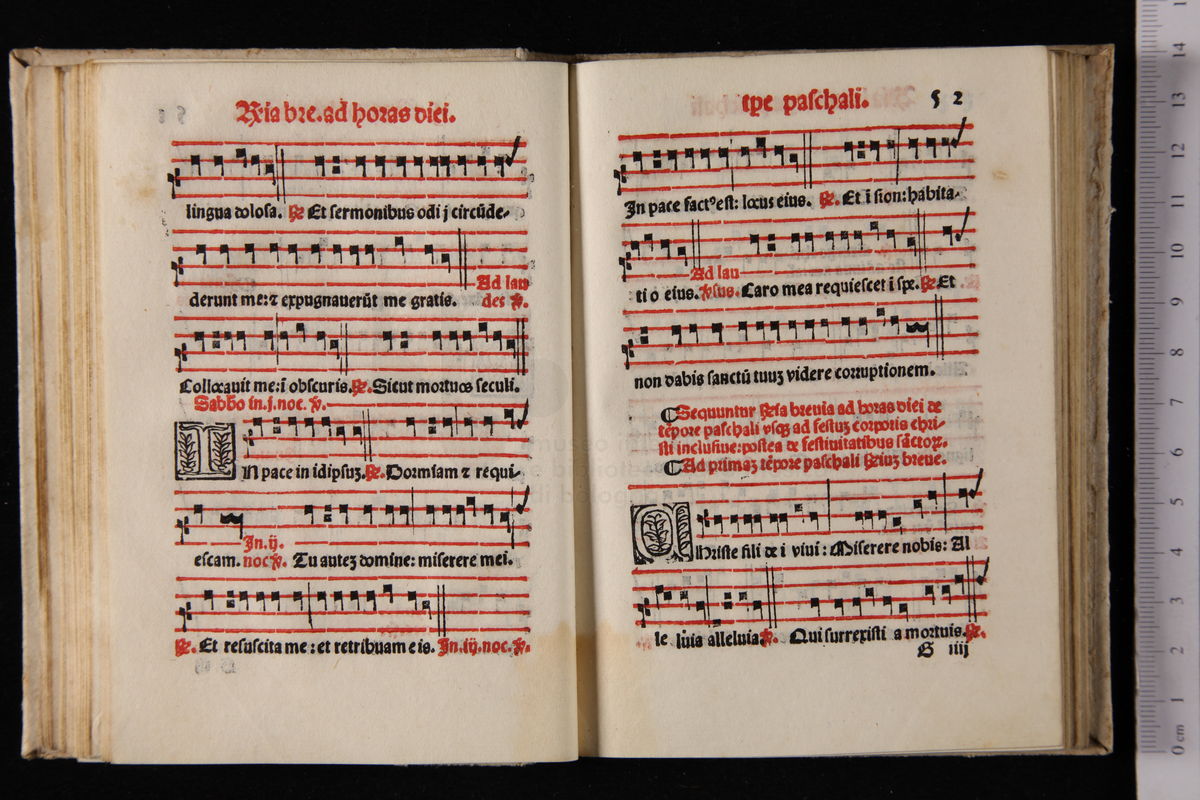 R̃ia bre. ad horas diei.
lingua dolosa. R̃. Et sermonibus odij circũde-
derunt me: ⁊ expugnauerũt me gratis.
Ad lau
des ℣.
Collocauit me: ĩ obscuris. R̃. Sicut mortuos seculi.
Sabbõ in .j. noc. ℣.
IN pace in idipsuꝫ. R̃. Dormiam ⁊ requi-
escam.
In .ij.
noc ℣.
Tu auteꝫ domine: miserere mei.
R̃. Et resuscita me: et retribuam eis. In .iij. noc. ℣.
tp̃e paschali.
52
In pace fact⁹ est: locus eius. R̃. Et ĩ sion: habita-
tio eius.
Ad lau
℣sus.
Caro mea requiescet i spe. R̃. Et
non dabis sanctũ tuuꝫ videre corruptionem.
¶ Sequuntur R̃ia breuia ad horas diei de
tẽpore paschali vsqꝫ ad festuꝫ corporis chri-
sti inclusiue: postea de festiuitatibus sãctoꝝ.
¶ Ad primaꝫ tẽpore paschali R̃iuꝫ breue.
CHriste fili de i viui: Miserere nobis: Al
le luia alleluia ℣. Qui surrexisti a mortuis. R̃.
G iiij
museo in
e bibliote
di bolog